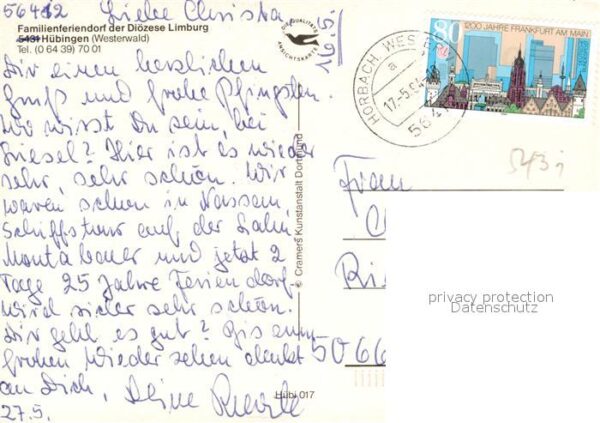 56412 Liebe Christa
Familienferiendorf der Diözese Limburg
5431 Hübingen (Westerwald)
Tel. (0 64 39) 70 01
16.5.
Dir einen herzlichen
Gruß und frohe Pfingsten.
Wo wirst Du sein, bei
Giesel? Hier ist es wieder
sehr, sehr schön. Wir
waren schon in Nassau,
Schiffstour auf der Lahn
Montabaur und jetzt 2
Tage 25 Jahre Feriendorf -
wird sicher sehr schön.
Dir geht es gut? Bis zum
frohen Wiedersehen denkt
an Dich, Deine
27.5.
DIE QUALITÄTS
ANSICHTSKARTE
© Cramers Kunstanstalt Dortmund
Hübi 017
HORBACH WESTERW
a
17.-5.94
5641
80
1200 JAHRE FRANKFURT AM MAIN
Frau
C
Ri
5066
privacy protection
Datenschutz